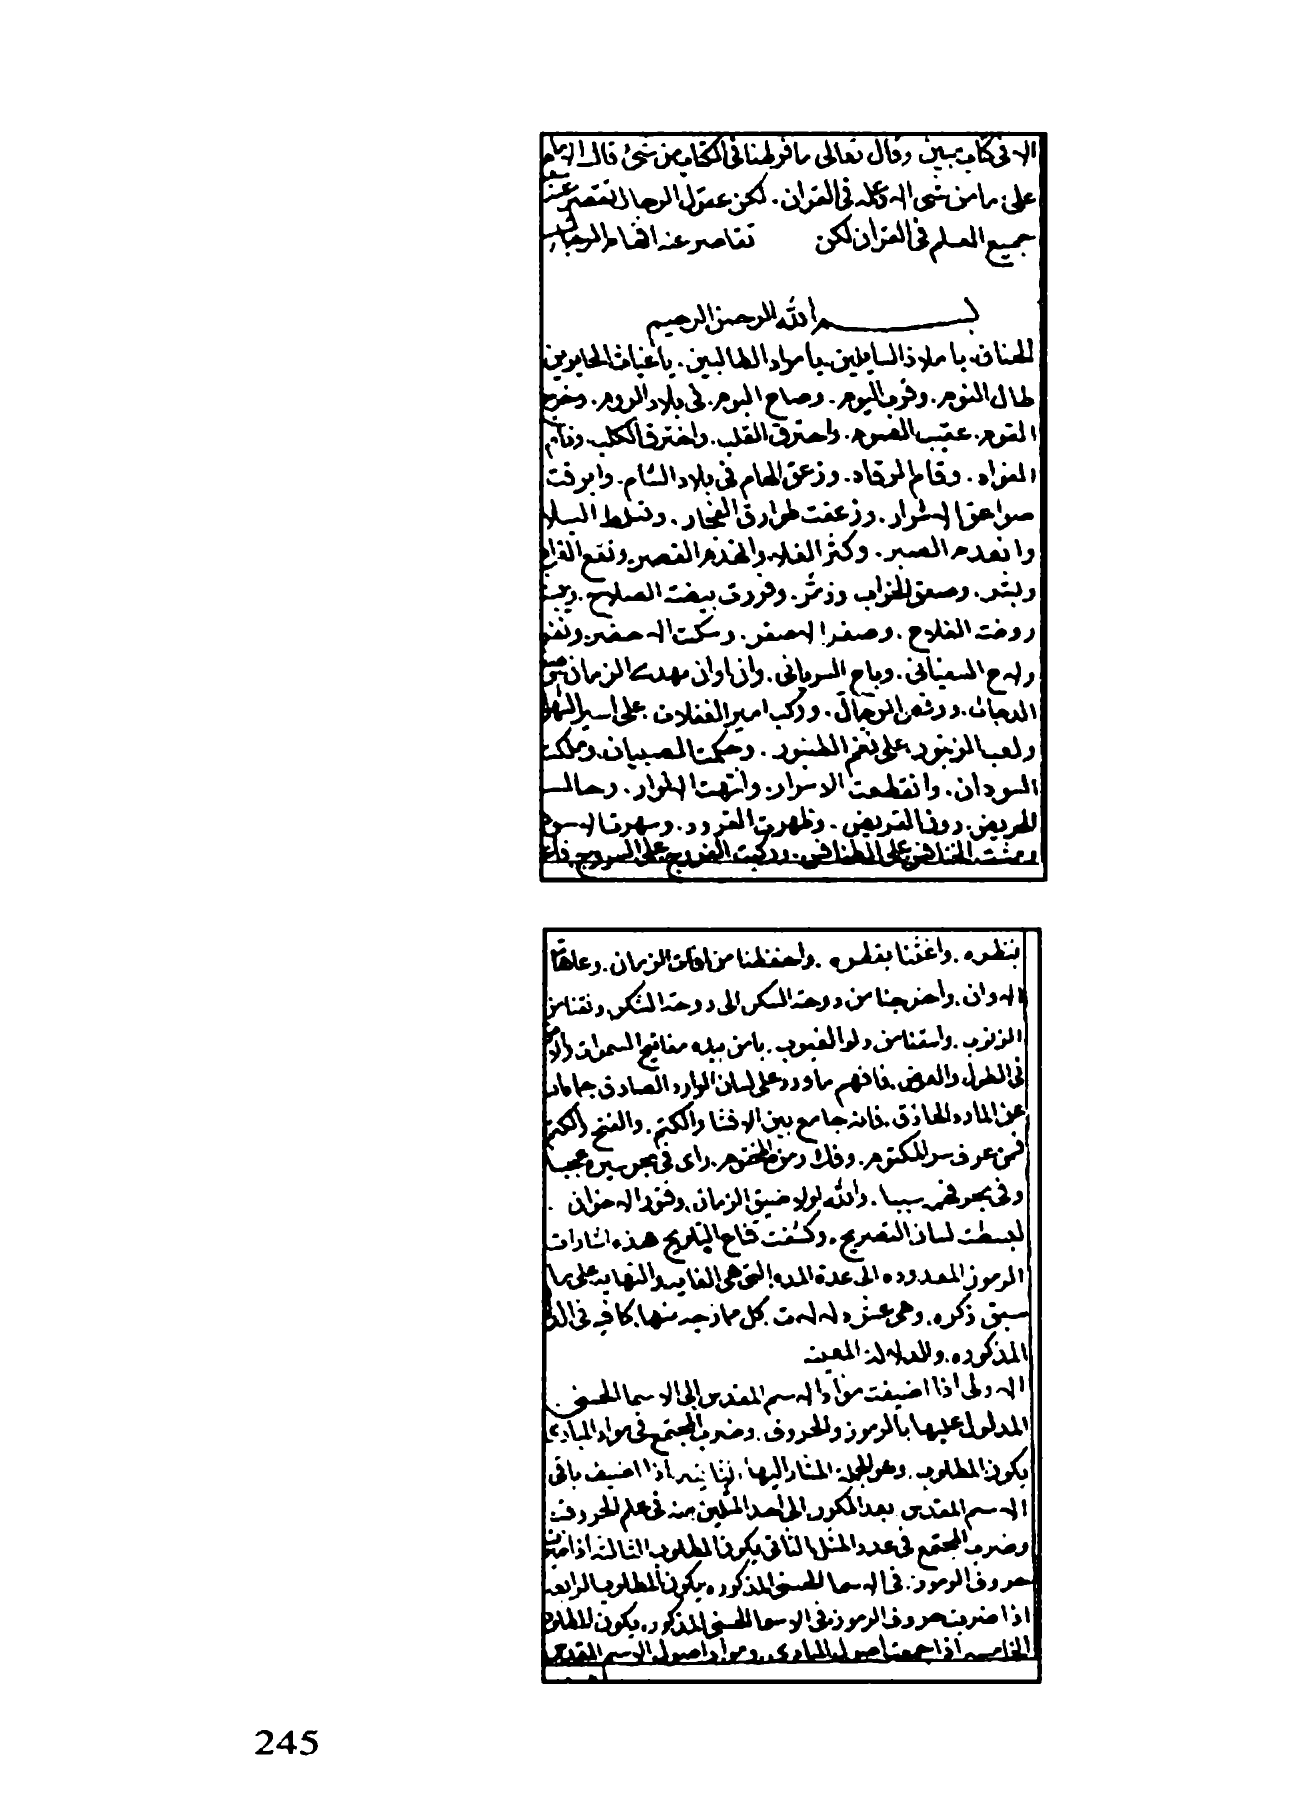 الا في كتاب مبين وقال تعالى ما فرطنا في الكتاب من شئ قال الامام
على ما من شى الا وعلمه في القران . لكن عقول الرجال تقصر عنه
جميع العلم في القران لكن تقاصر عنه افهام الرجال
بسم الله الرحمن الرحيم
يا ملاذ السايلين يا مراد الطالبين . يا غياث الحايرين
طال النوم . وقرب اليوم . وصاح البوم . في بلاد الروم . وخرج
القوم . عقيب الصوم . واحترق القلب . واخترق الكلب . ونام
الفواد . وقام الرقاد . وزعق الهام في بلاد الشام . وابرقت
صواعق الاشرار . وزعقت طوارق الفجار . وتسلط البلا
وانعدم الصبر . وكثر الغلا . وانهدم القصر
وصعق الخراب
روضة الفلاح . وصفر الاصفر .
ولاح السفيانى . وباح السريانى . وان اوان مهدى الزمان
الدجال . ورقص الرجال . وركب امير الغفلات . على اسير
ولعب الزنبور . على نغم الطنبور . وحكمت الصبيان . وملكت
السودان . وانقطعت الاسرار . وانتهت الاطوار . وحال
الجريض . دون القريض . وظهرت القرود . وسهرت الاسود
ومشت الخنافس على الطنافس . وركبت الفروج على السروج .
بنظره . واغثنا بقطره . واحفظنا من افات الزمان . وعاهات
الاوان . واخرجنا من دوحة السكر الى دوحة الشكر . ونقنا من
الذنوب . واسقنا من دلو الغيوب . يا من بيده مفاتيح السموات والار
في الطول والعرض . فافهم ما ورد على لسان الوارد الصادق
عن المادد الحاذق . فانه جامع بين الافشا والكتم . والفتح والختم
فمن عرف سر المكتوم . وفك رمز المختوم . راى في بحر سيره عجبا
وفي بحر فهمه سببا . والله لولا ضيق الزمان . وفقد الاخوان .
لبسطت لسان التصريح . وكشفت قناع التلويح هذه اشارات
الرموز المعدوده الى عدة المده التى هى الغايه والنهايه على ما
سبق ذكره . وهى عشر دلالات . كل نماذجه منها . كافيه في
المذكوره . والدلالة المعينه
الاولى اذا اضيفت مواد الاسم المقدس الى الاسما الحسنى .
المدلول عليها بالرموز والحروف . وضرب المجتمع في مواد المبادى
يكون المطلوب . وهو الجملة المشار اليها . الثانيه اذا اضيف باقى
الاسم المقدس بعد المكرر الى احد المثلين منه في علم الحروف
وضرب المجتمع في عدد المثل الثانى يكون المطلوب الثالثه اذا ضربت
حروف الرموز . في الاسما الحسنى المذكوره يكون المطلوب الرابعه
اذا ضربت حروف الرموز في الاسما الحسنى المذكوره يكون المطلوب
الخامسه اذا جمعت اصول المبادى . ومواد اصول الاسم المقدس
245